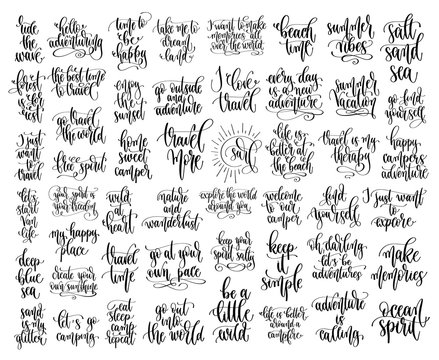 ride
the
wave
hello
adventuring
time to
be
happy
take me to
dream
land
I want to make
memories all
over the world
beach
time
summer
vibes
salt
sand
sea
forest
is the
best
the best time
to travel
enjoy
the
sunset
go outside
and
adventure
I love
travel
every day
is a new
adventure
summer
vacation
go find
yourself
I just
want
to
travel
go travel
the world
free spirit
home
sweet
camper
travel
more
surf
life is
better
at the
beach
travel is my
therapy
happy
campers
adventure
let's
start
van
life
your spirit is
your freedom
my happy
place
wild
at
heart
nature
and
wanderlust
explore the world
around you
welcome
to our
camper
find
yourself
I just want
to
explore
deep
blue
sea
create your
own sunshine
travel
time
go at your
own pace
keep your
spirit salty
keep
it
simple
oh, darling
let's be
adventures
make
memories
sand
is my
glitter
let's go
camping
eat
sleep
camp
repeat
go out
into
the world
be a
little
wild
life is better
around a
campfire
adventure
is
calling
ocean
spirit